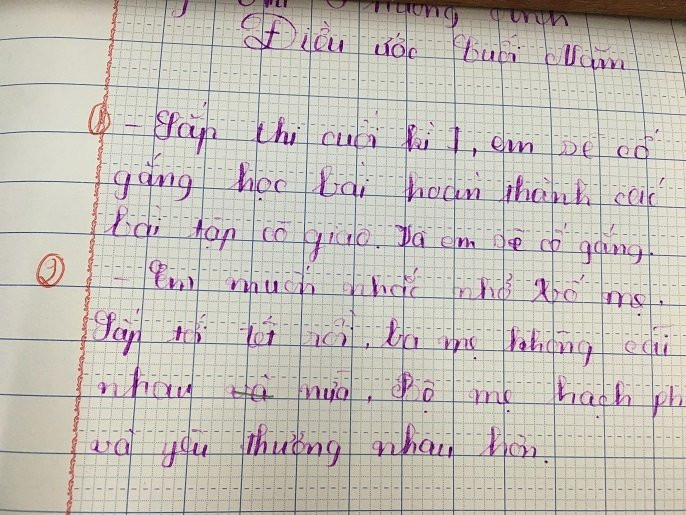 Điều ước cuối năm
① - Sắp thi cuối kì 1, em sẽ cố
gắng học bài hoàn thành các
bài tập cô giao. Và em sẽ cố gắng.
② - Em muốn nhắc nhở bố mẹ.
Sắp tới tết rồi, ba mẹ không cãi
nhau và nữa, Bố mẹ hạch ph
và yêu thương nhau hơn.